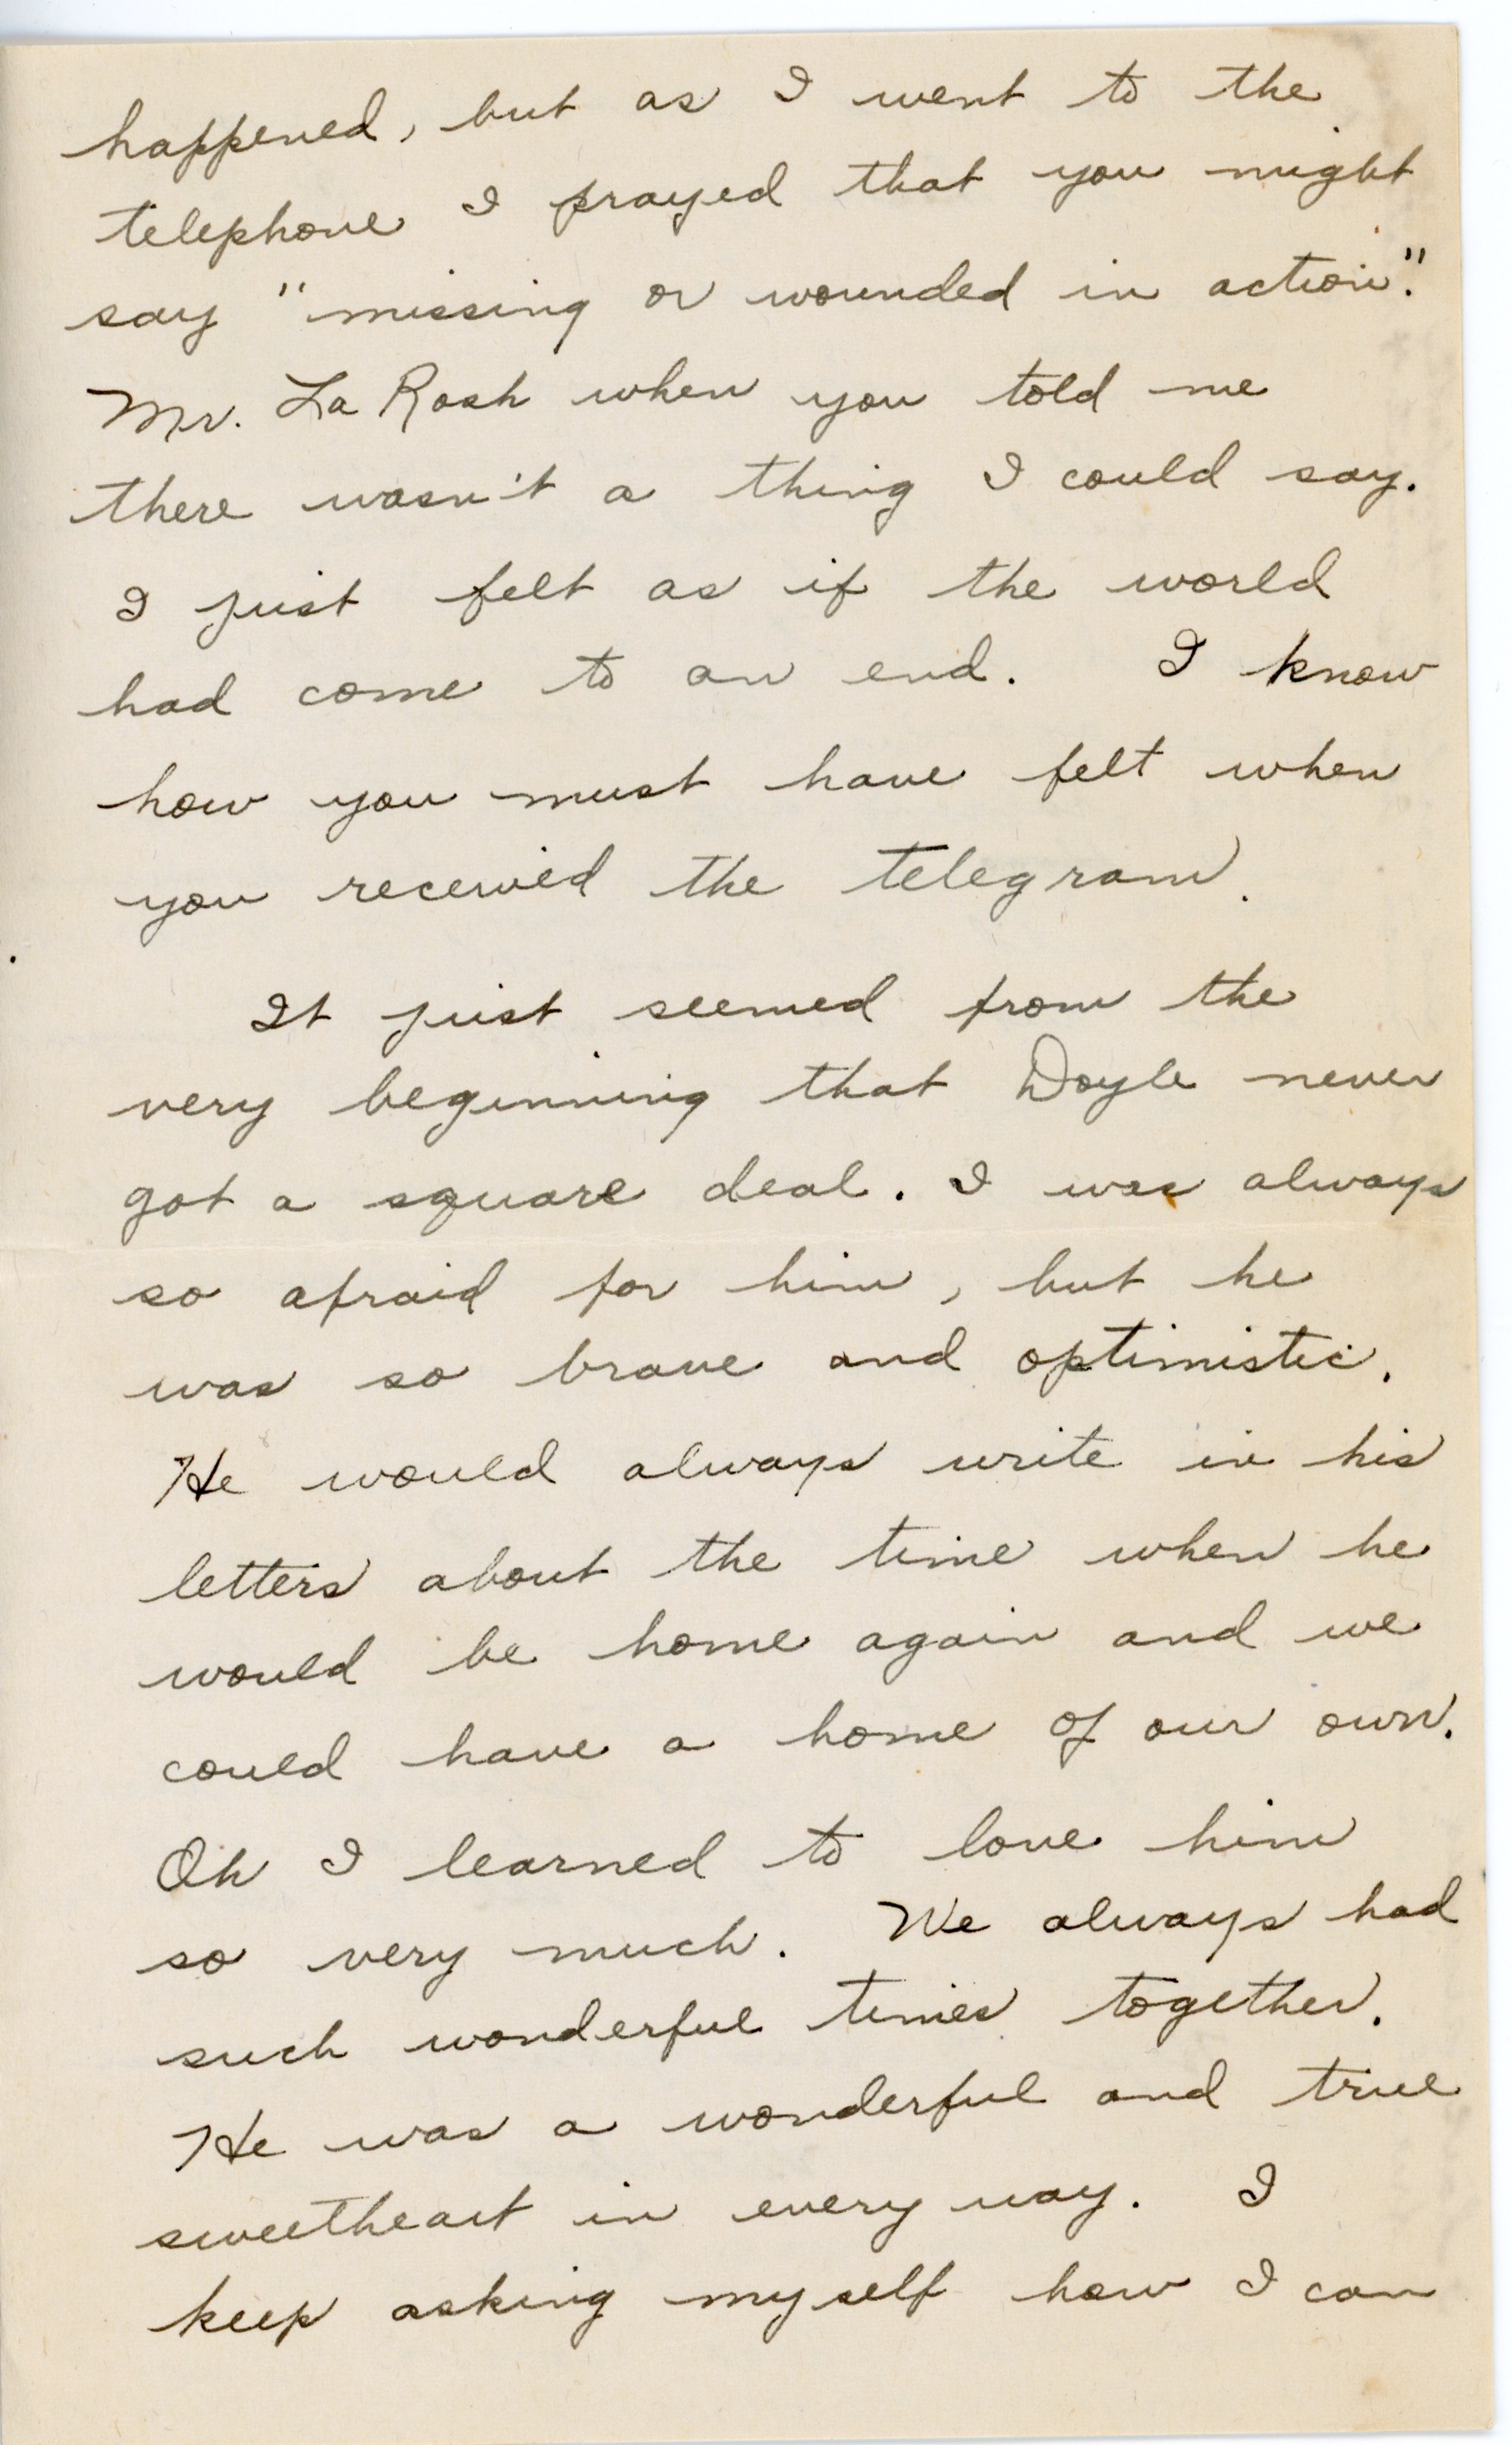 happened, but as I went to the
telephone I prayed that you might
say "missing or wounded in action".
Mr. La Rosh when you told me
there wasn't a thing I could say.
I just felt as if the world
had come to an end. I know
how you must have felt when
you received the telegram.
It just seemed from the
very beginning that Doyle never
got a square deal. I was always
so afraid for him, but he
was so brave and optimistic.
He would always write in his
letters about the time when he
would be home again and we
could have a home of our own.
Oh I learned to love him
so very much. We always had
such wonderful times together.
He was a wonderful and true
sweetheart in every way. I
keep asking myself how I can